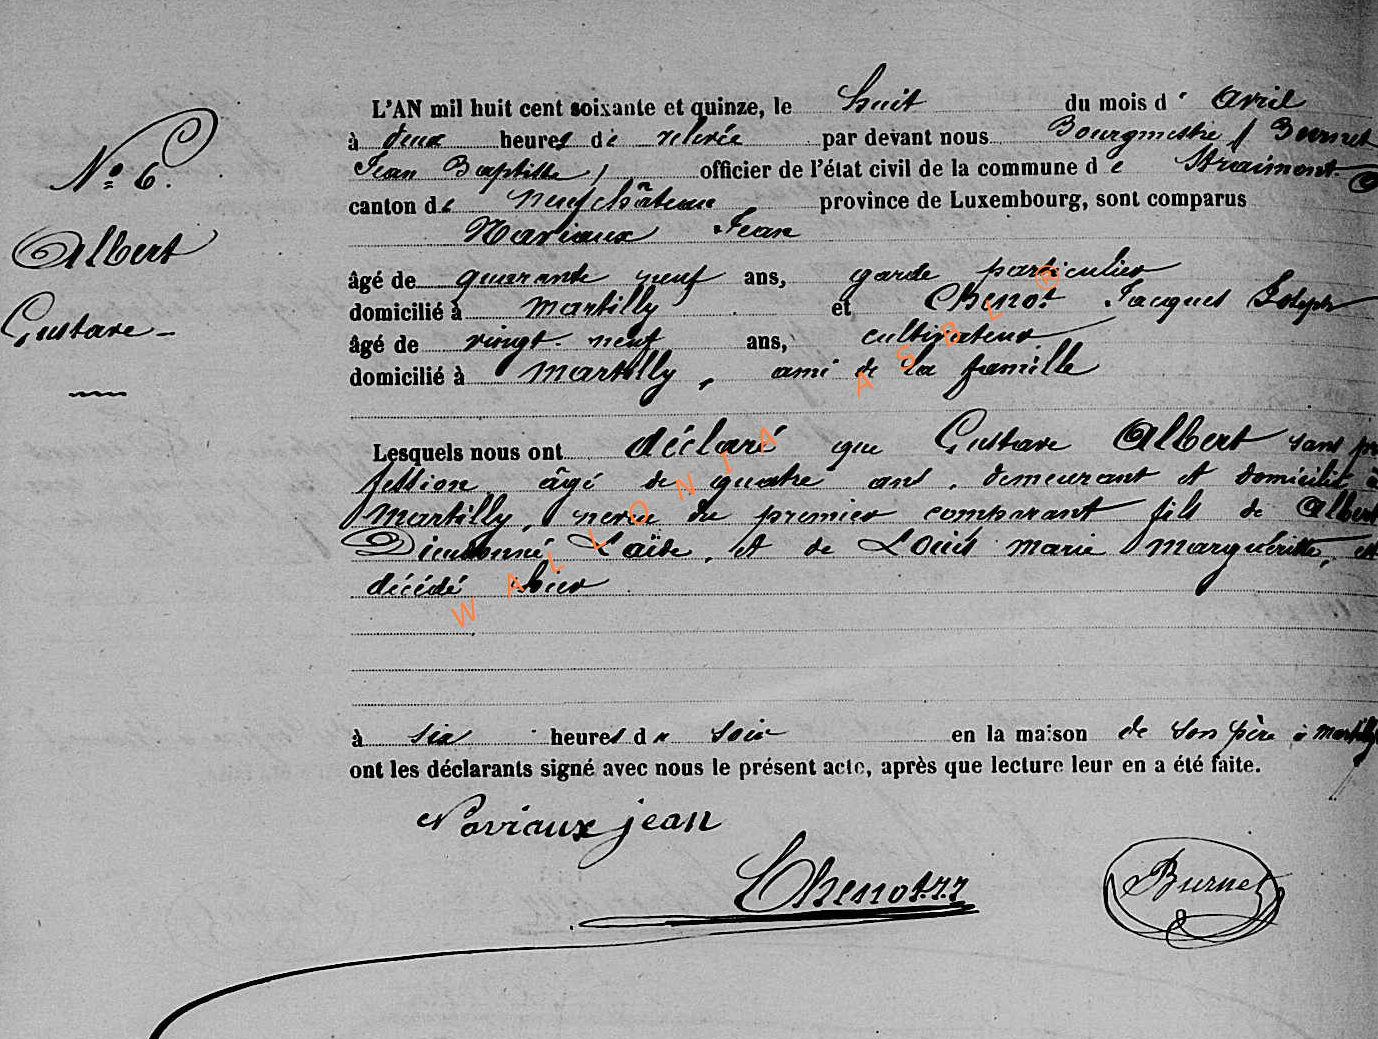 N° 6.
Albert
Gustave
L'AN mil huit cent soixante et quinze, le huit du mois d' avril
à deux heures de relevée par devant nous Bourgmestre / Burnet
Jean Baptiste / officier de l'état civil de la commune de Straimont
canton de Neufchâteau province de Luxembourg, sont comparus
Naviaux Jean
âgé de quarante neuf ans, garde particulier
domicilié à Martilly et Chenot Jacques Joseph
âgé de vingt-neuf ans, cultivateur
domicilié à Martilly, ami de la famille
Lesquels nous ont déclaré que Gustave Albert sans pro
fession âgé de quatre ans, demeurant et domicilié à
Martilly, neveu du premier comparant fils de Albert
Dieudonné Laïde, et de Louis Marie Marguéritte, est
décédé hier
à six heures du soir en la maison de son père à Martilly
ont les déclarants signé avec nous le présent acte, après que lecture leur en a été faite.
Naviaux jean
Chenot J.J
Burnet
WALLONIA ASBL ®